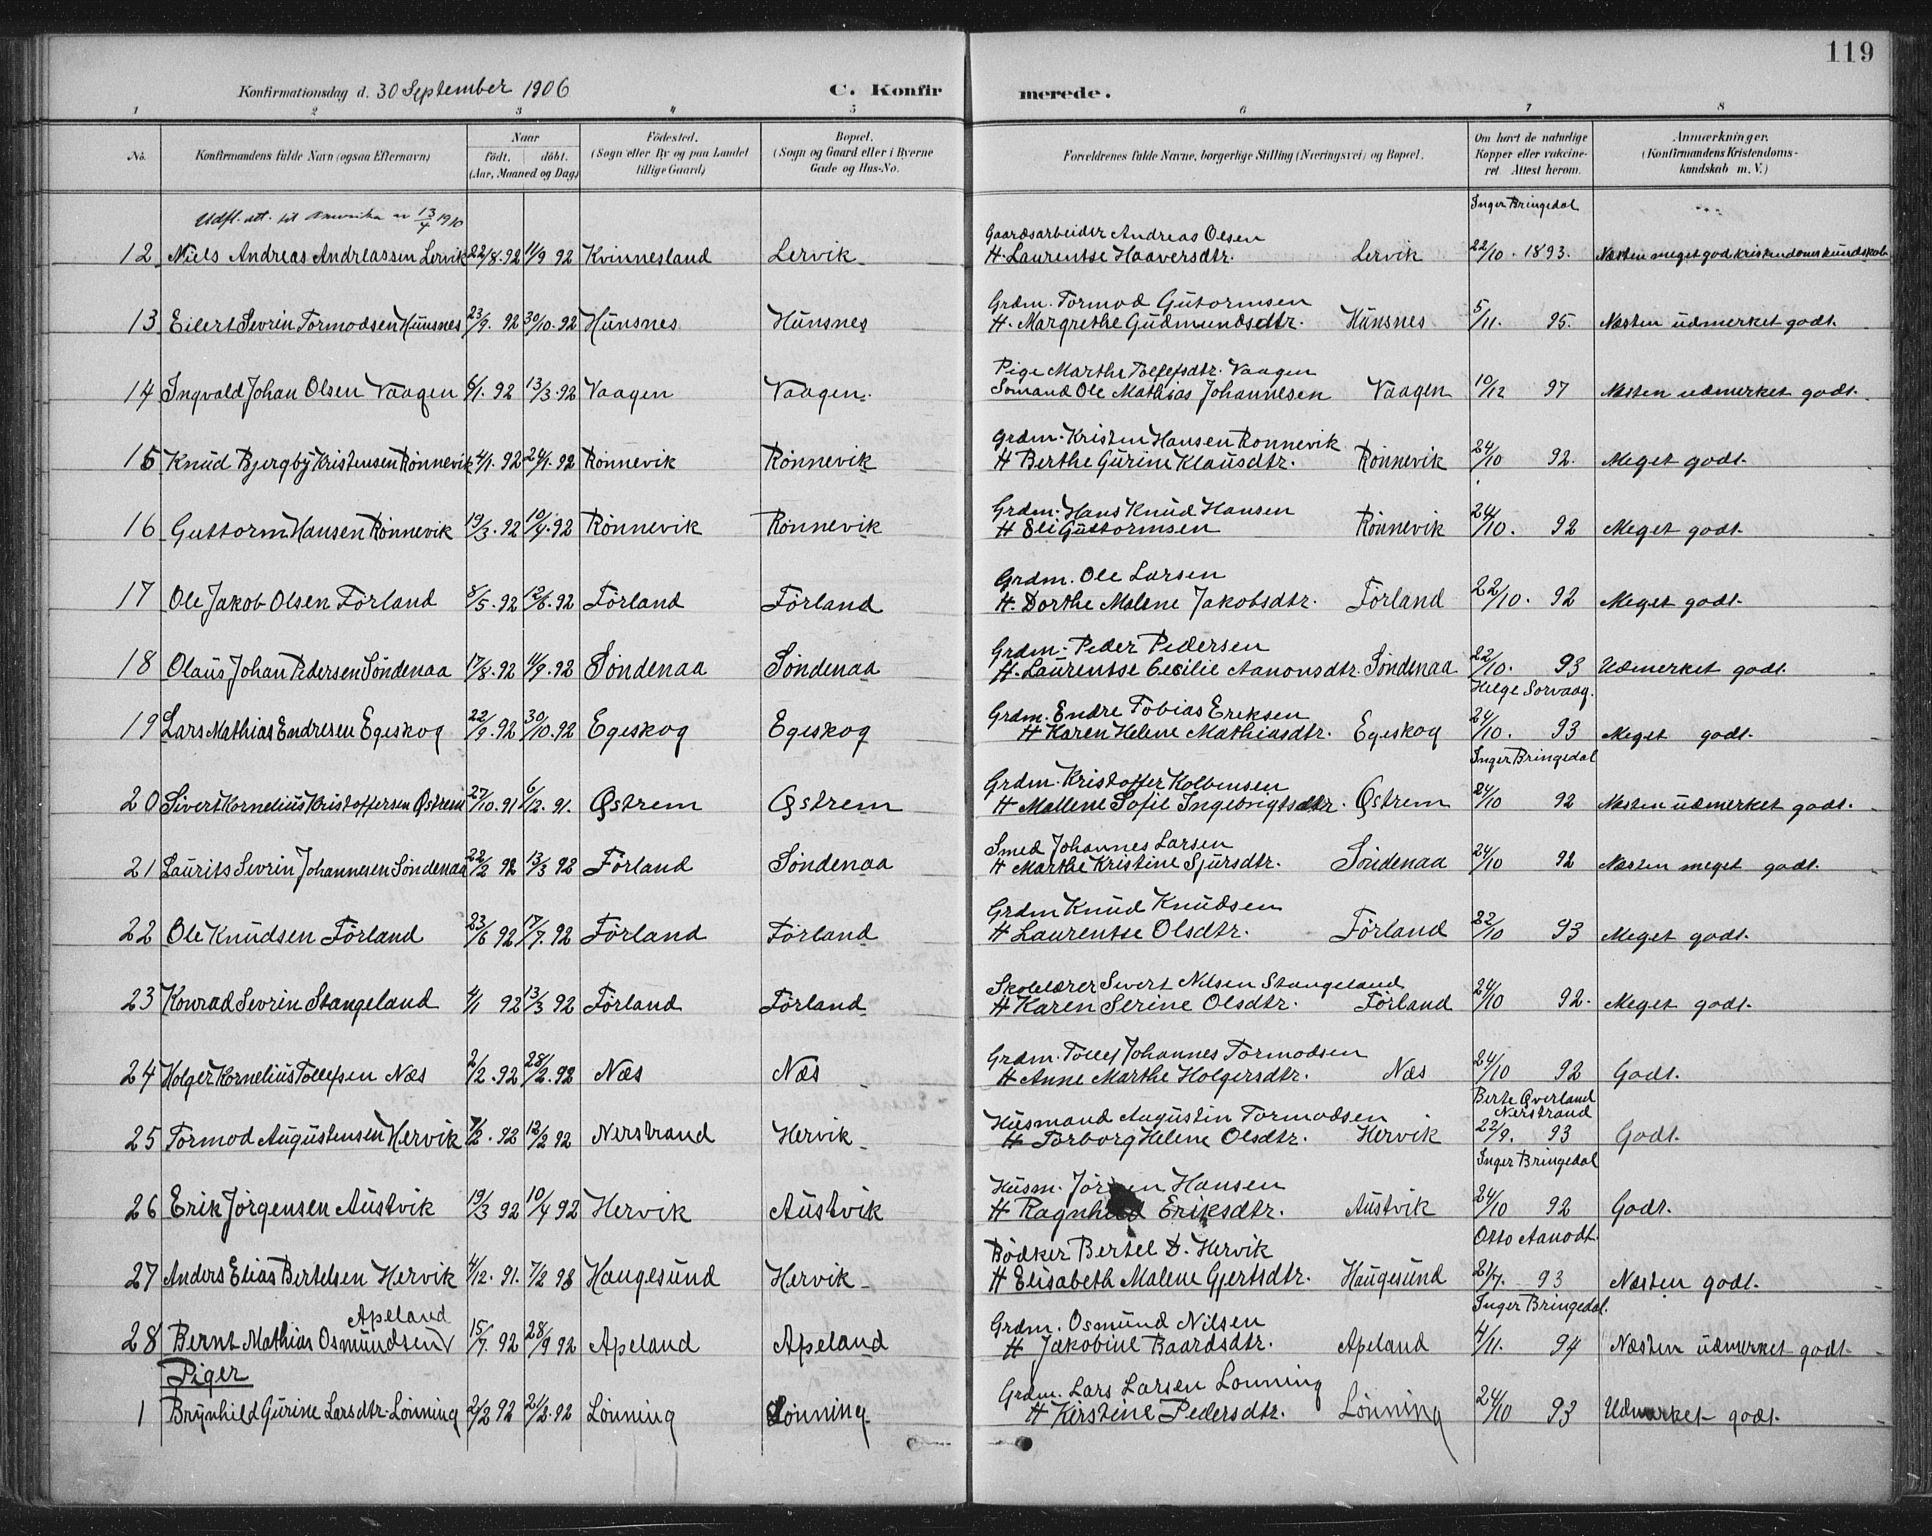 119
Konfirmationsdag d. 30 September 1906 C. Konfirmerede.
1 2 3 4 5 6 7 8
No. Konfirmandens fulde Navn (ogsaa Efternavn) Naar födt. döbt. (Aar, Maaned og Dag) Födested. (Sogn eller By og paa Landet tillige Gaard) Bopæl. (Sogn og Gaard eller i Byerne Gade og Hus-No. Forældrenes fulde Navne, borgerlige Stilling (Næringsvei) og Bopæl. Om havt de naturlige Kopper eller vakcineret Attest herom. Anmærkninger. (Konfirmandens Kristendomskundskab m. V.)
Udfl. att. til Amerika 13/4 1910 Inger Bringedal
Gaardsarbeider Andreas Olsen
12 Niels Andreas Andreassen Lervik 22/8. 92 11/9 92 Kvinnesland Lervik H. Laurentse Haaversdtr. Lervik 22/10. 1893. Næsten meget god kristendomskundskab
Grdm. Tormod Gutormsen
13 Eilert Sevrin Tormodsen Hunsnes 23/9. 92 30/10. 92 Hunsnes Hunsnes H. Margrethe Gudmundsdtr. Hunsnes 5/11. 95. Næsten udmerket godt.
Pige Marthe Tollefsdtr. Vaagen
14 Ingvald Johan Olsen Vaagen 6/1. 92 13/3. 92 Vaagen Vaagen. Sömand Ole Mathias Johannesen Vaagen 10/12 97 Næsten udmerket godt.
Grdm. Kristen Hansen Rönnevik
15 Knud Bjergby Kristensen Rönnevik 4/1. 92 24/1. 92 Rönnevik Rönnevik H Berthe Gurine Klausdtr. Rönnevik 24/10 92. Meget godt.
Grdm. Hans Knud Hansen
16 Guttorm Hansen Rönnevik 19/3. 92 10/4. 92 Rönnevik Rönnevik H Eli Guttormsen Rönnevik 24/10. 92 Meget godt.
Grdm. Ole Larsen
17 Ole Jakob Olsen Förland 8/5. 92 12/6. 92 Förland Förland H. Dorthe Malene Jakobsdtr. Förland 22/10. 92 Meget godt.
Grdm. Peder Pedersen
18 Olaus Johan Pedersen Söndenaa 17/8. 92 4/9. 92 Söndenaa Söndenaa H. Laurentse Cecilie Aanonsdtr. Söndenaa 22/10. 93 Udmerket godt.
Helge Sorvaag.
Grdm. Endre Tobias Eriksen
19 Lars Mathias Endresen Egeskog 22/9. 92 30/10. 92 Egeskog Egeskog H Karen Helene Mathiasdtr. Egeskog 24/10. 93 Meget godt.
Inger Bringedal
Grdm. Kristoffer Kolbensen
20 Sivert Kornelius Kristoffersen Østrem 27/10. 91 6/12. 91. Østrem Østrem H Mallene Sofie Ingebrigtsdtr. Østrem 24/10 92 Næsten udmerket godt.
Smed Johannes Larsen
21 Laurits Sevrin Johannesen Söndenaa 22/2 92 13/3 92 Förland Söndenaa H Marthe Kristine Sjursdtr. Söndenaa 24/10 92 Næsten meget godt.
Grdm Knud Knudsen
22 Ole Knudsen Förland 23/6 92 17/7. 92 Förland Förland H Laurentse Olsdtr. Förland 22/10 93 Meget godt.
Skolelærer Sivert Nilsen Stangeland
23 Konrad Sevrin Stangeland 4/1 92 13/3 92 Förland Förland H Karen Serine Olsdtr. Förland 24/10 92. Meget godt.
Grdm. Tollef Johannes Tormodsen
24 Holger Kornelius Tollefsen Næs 2/2. 92 28/2. 92 Næs Næs H Anne Marthe Holgersdtr. Næs 24/10 92 Godt.
Berte Qverland
Nerstrand
Husmand Augustin Tormodsen
25 Tormod Augustensen Hervik 7/2. 92 12/2 92 Nerstrand Hervik H Torborg Helene Olsdtr. Hervik 22/9. 93 Godt.
Inger Bringedal
Husm. Jörgen Hansen
26 Erik Jörgensen Austvik 19/3 92 10/4 92 Hervik Austvik H Ragnhild Eriksdtr. Austvik 24/10 92 Godt.
Otto Aanodt.
Bödker Bertel D. Hervik
27 Anders Elias Bertelsen Hervik 4/12. 91. 7/2 92 Haugesund Hervik H Elisabeth Malene Gjertsdtr. Haugesund 21/7. 93 Næsten godt.
Inger Bringedal.
Apeland Grdm. Osmund Nilsen
28 Bernt Mathias Osmundsen 15/7. 92 28/9 92 Apeland Apeland H Jakobine Baardsdtr. Apeland 4/11. 94 Næsten udmerket godt
Piger
Grdm. Lars Larsen Lönning
1 Brynhild Gurine Larsdtr. Lönning 2/2 92 21/2. 92 Lönning Lönning H Kirstine Pedersdtr. Lönning 24/10 93 Udmerket godt.